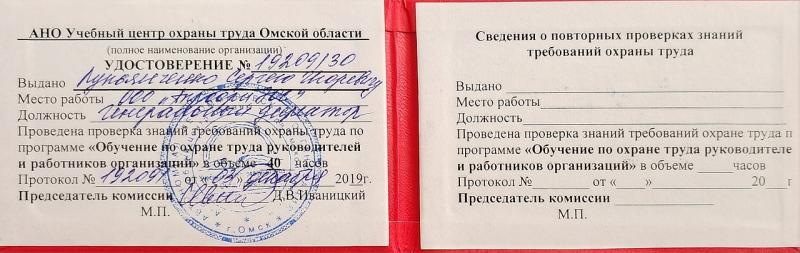 АНО Учебный центр охраны труда Омской области
(полное наименование организации)
УДОСТОВЕРЕНИЕ № 19209/30
Выдано Сергею Игоревичу
Место работы ООО
Должность директор
Проведена проверка знаний требований охраны труда по
программе «Обучение по охране труда руководителей
и работников организаций» в объеме 40 часов
Протокол № от « 03 » декабря 2019г.
Председатель комиссии Д.В.Иваницкий
М.П.
г.Омск
Сведения о повторных проверках знаний
требований охраны труда
Выдано
Место работы
Должность
Проведена проверка знаний требований охране труда п
программе «Обучение по охране труда руководителе
и работников организаций» в объеме часов
Протокол № от « » 20 г
Председатель комиссии
М.П.